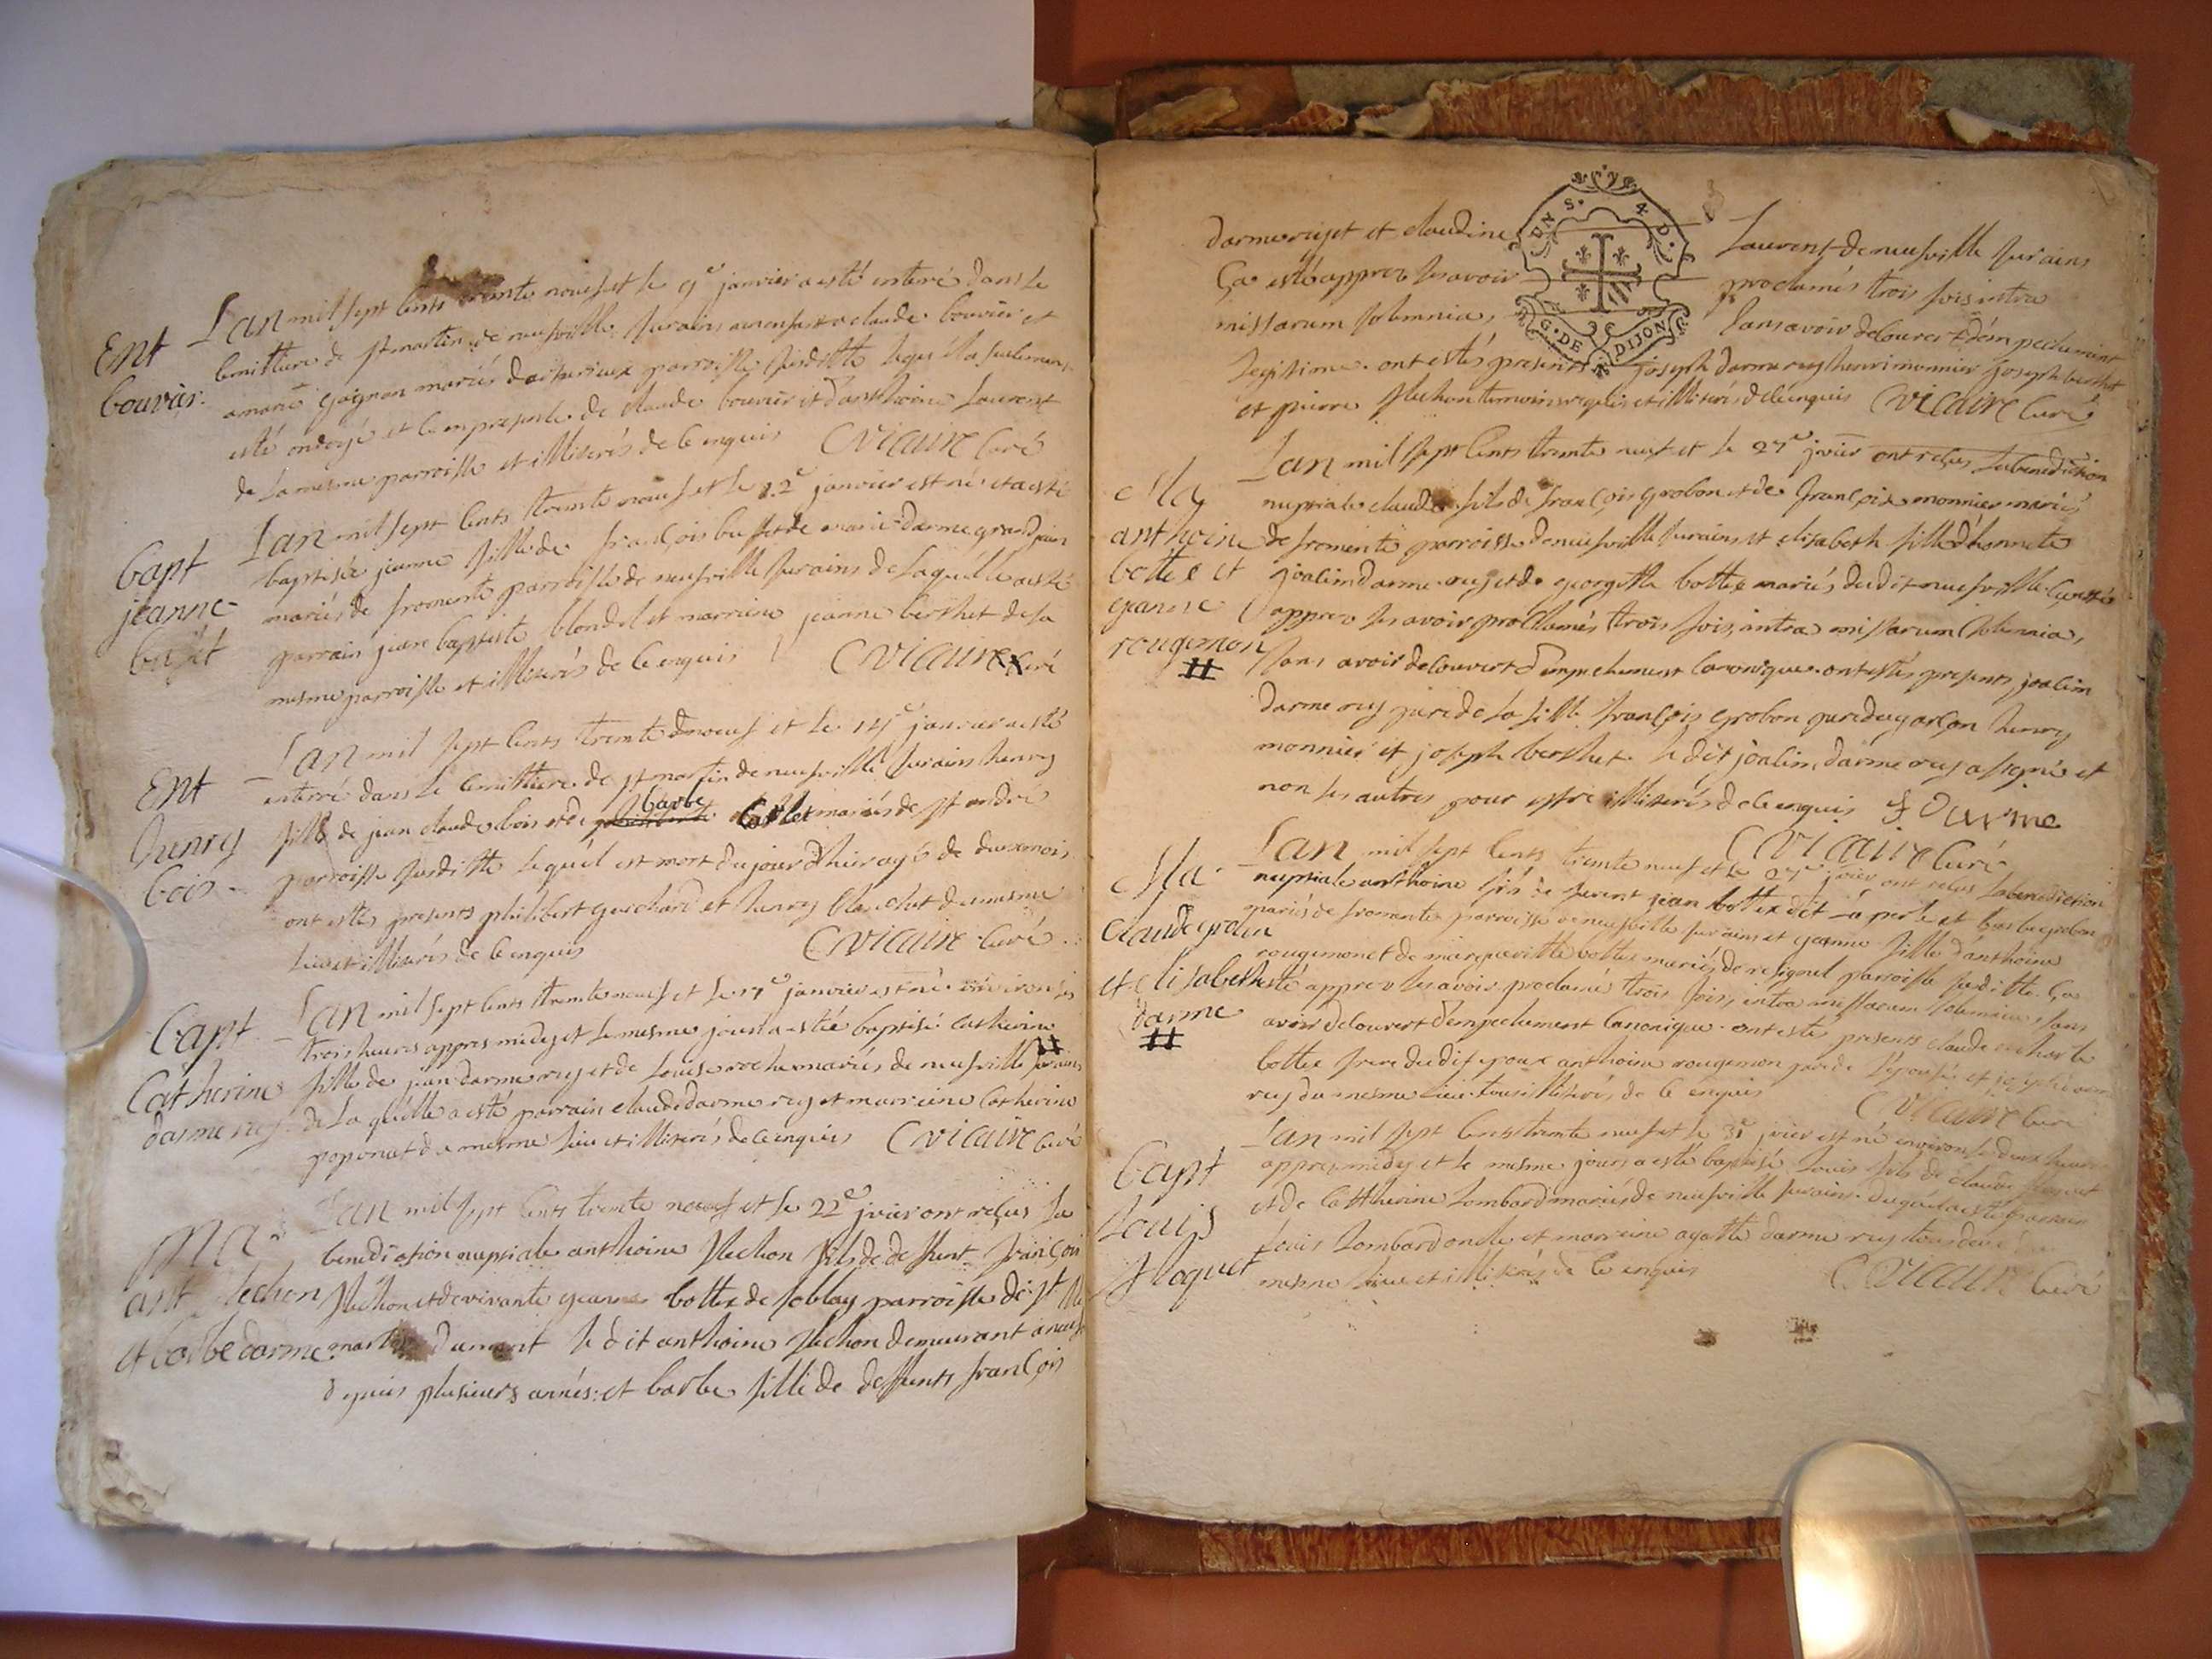 Ent
bouvier.
Lan mil sept cents trente neuf et le 9e janvier a esté enteré dans le
cemittiere de st martin de neufville sur ains un enfant a claude bouvier et
a marie goignon mariés parroisse susditte lequel a seulement
esté ondoyé et ce en presence de claude bouvier et d'anthoine laurent
de la mesme parroisse et illiterés de ce enquis C Vicaire Curé
bapt
jeanne
bufet
Lan mil sept cents trente neuf et le 12e janvier est né et a esté
baptisée jeanne fille de françois bufet et de marie darme grandjean
mariés de fromente parroisse de neufville sur ains de laquelle a esté
parrain jean baptiste blondel et marreine jeanne berthet de la
mesme parroisse et illiterés de ce enquis C Vicaire Curé
Ent
henry
bois
Lan mil sept cents trente neuf et le 14e janvier a esté
enterré dans le cemittiere de st martin de neufville sur ains henry
fils de jean claude bois et de barbe mariés de st andre
parroisse susditte lequel est mort du jour d'hier agé de deux mois
ont estés presents philibert guichard et henry blanchet du mesme
lieu et illiterés de ce enquis C Vicaire Curé
bapt
Catherine
darmerey
Lan mil sept cents trente neuf et le 17e janvier est né environ les
trois heures appres midy et le mesme jour a estée baptisé catherine
fille de jean darmerey et de louise roche mariés de neufville sur ains
de laquelle a esté parrain claude darmerey et marreine catherine
poponet du mesme lieu et illiterés de ce enquis C Vicaire Curé
Ma
ant flechon
et barbe darme
Lan mil sept cents trente neuf et le 22e jvier ont reçus la
benediction nuptiale anthoine flechon fils de deffunt françois
flechon et de vivante jeanne bottex de soblay parroisse de st
martin du mont le dit anthoine flechon demeurant a neuf
depuis plusieurs années: et barbe fille de deffunts françois
darmerey et et claudine laurent de neufville sur ains
Ça esté appres les avoir proclamés trois fois intra
missarum solemnia, sans avoir decouvert d'empechement
legitime. ont estés presents joseph darmerey henri monnier joseph berthet
et pierre flechon temoins requis et illiterés de ce enquis C Vicaire Curé
GN DE DIJON
Ma
anthoine
bottex et
jeanne
rougemon
#
Lan mil sept cents trente neuf et le 27e jvier ont reçus la benediction
nuptiale claude fils de françois grobon et de françoise monnier mariés
de fromente parroisse de neufville sur ains et elisabeth fille d'honnete
joalim darmerey et de georgette bottex mariés dudit neufville ça esté
appres les avoir proclamés trois fois, intra missarum solemnia,
sans avoir decouvert d'empechement canonique. ont estés presents joalim
darmerey pere de la fille françois grobon pere du garçon henry
monnier et joseph berthet. le dit joalim, darmerey a signé et
non les autres pour estre illiterés de ce enquis J Darme
C Vicaire Curé
Ma
claude grobon
et elisabeth
darme
#
Lan mil sept cents trente neuf et le 27e jvier ont reçus la benediction
nuptiale anthoine fils de furent jean bottex dit la perle et barbe grobon
mariés de fromente parroisse de neufville sur ains et jeanne fille d'anthoine
rougemon et de margueritte bottex mariés de resignel parroisse susditte. Ça
esté appres les avoir proclamé trois fois, intra missarum solemnia, sans
avoir decouvert d'empechement canonique. ont esté presents claude
bottex frere dudit epoux anthoine rougemon pere de l'epouse et joseph darme
rey du mesme lieu tous illiterés de ce enquis C Vicaire Curé
bapt
Louis
floquet
Lan mil sept cents trente neuf et le 31e jvier est né environ les deux heures
appres midy et le mesme jour a esté baptisé louis fils de claude floquet
et de catherine lombard mariés de neufville sur ains. duquel a esté parrain
louis lombard oncle et marreine agathe darmerey tous deux du
mesme lieu et illiterés de ce enquis C Vicaire Curé